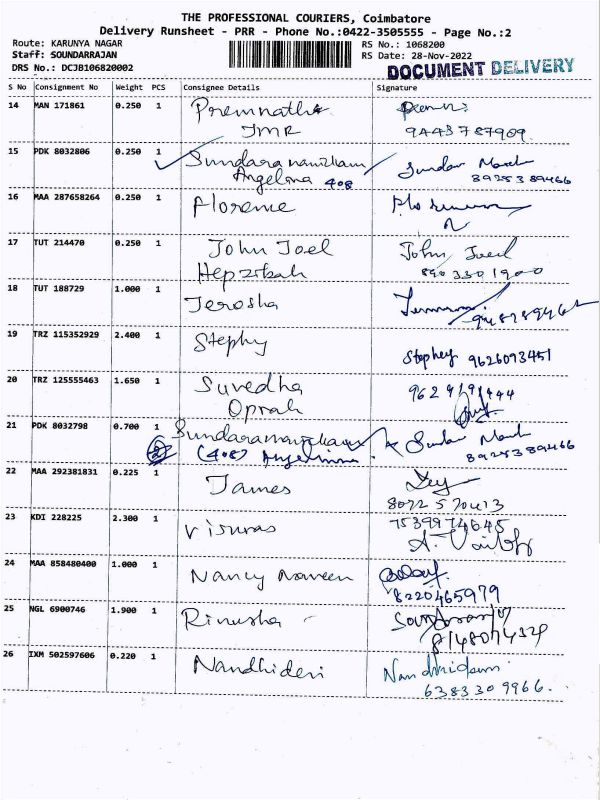 THE PROFESSIONAL COURIERS, Coimbatore
Delivery Runsheet - PRR - Phone No.:0422-3505555 - Page No.:2
Route: KARUNYA NAGAR RS No.: 1068200
Staff: SOUNDARRAJAN RS Date: 28-Nov-2022
DRS No.: DCJB106820002 DOCUMENT DELIVERY
S No Consignment No Weight PCS Consignee Details Signature
14 MAN 171861 0.250 1 Premnath
JMR 9443787909.
15 PDK 8032806 0.250 1 Sundaramanickam
Angelina 408 8925389466
16 MAA 287658264 0.250 1 Florence
17 TUT 214470 0.250 1 John Joel John Joel
Hepzibah 8903301900
18 TUT 188729 1.000 1 Jerosha
19 TRZ 115352929 2.400 1 Stephy Stephey 9626093451
20 TRZ 125555463 1.650 1 Suvedha 9629191444
Oprah
21 PDK 8032798 0.700 1 Sundaramanickam
(408) Angelina 8925389466
22 MAA 292381831 0.225 1 James
23 KDI 228225 2.300 1 7539974645
24 MAA 858480400 1.000 1 Nancy Naveen
8220465979
25 NGL 6900746 1.900 1 Rinusha
26 IXM 502597606 0.220 1 Nandhidevi
6383309966.